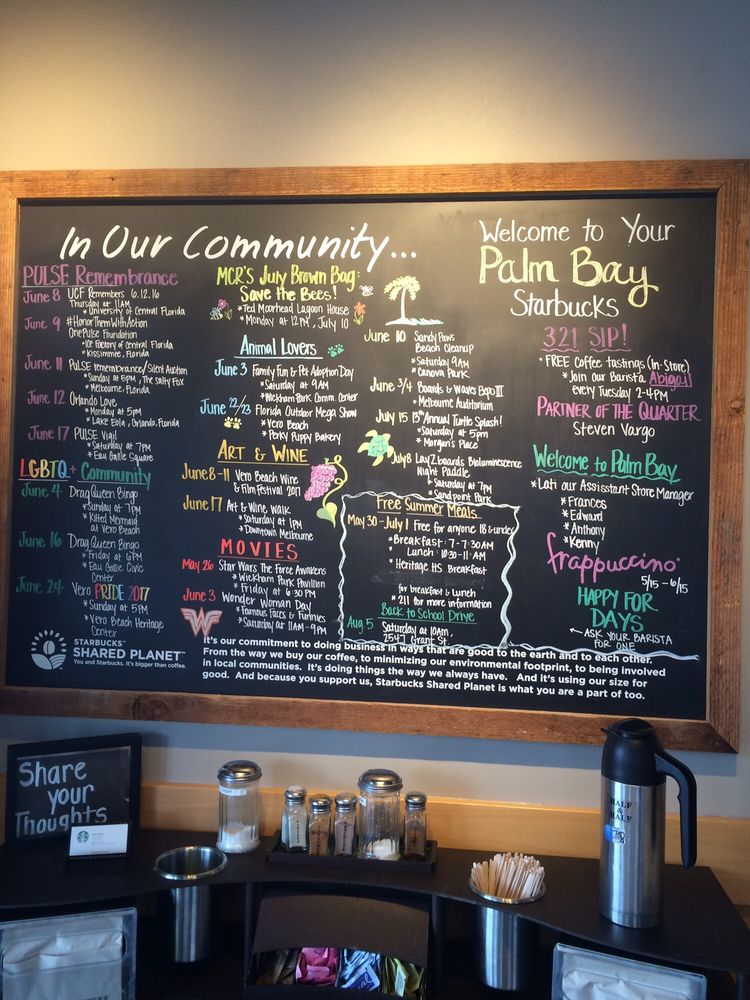 In Our Community...
PULSE Remembrance
June 8 UCF Remembers 6.12.16
Thursday at 11AM
*University of Central Florida
June 9 #HonorThemWithAction
OnePulse Foundation
*Ice Factory of Central Florida
*Kissimmee, Florida
June 11 PULSE remembrance/Silent Auction
*Sunday at 5PM, The Salty Fox
*Melbourne, Florida
June 12 Orlando Love
*Monday at 5pm
*Lake Eola, Orlando, Florida
June 17 PULSE Vigil
*Saturday at 7PM
*Eau Gallie Square
LGBTQ+ Community
June 4 Drag Queen Bingo
*Sunday at 7pm
*Killed Mermaid
at Vero Beach
June 16 Drag Queen Bingo
*Friday at 6PM
*Eau Gallie Civic
Center
June 24 Vero PRIDE 2017
*Sunday at 5PM
*Vero Beach Heritage
Center
STARBUCKS
SHARED PLANET
You and Starbucks. It's bigger than coffee.
MCR's July Brown Bag:
Save the Bees!
*Ted Moorhead Lagoon House
*Monday at 12PM, July 10
Animal Lovers
June 3 Family Fun & Pet Adoption Day
*Saturday at 9AM
*Wickham Park Comm. Center
June 22/23 Florida Outdoor Mega Show
*Vero Beach
*Perky Puppy Bakery
ART & WINE
June 8-11 Vero Beach Wine
& Film Festival 2017
June 17 Art & Wine Walk
*Saturday at 1PM
*Downtown Melbourne
MOVIES
May 26 Star Wars The Force Awakens
*Wickham Park Pavilion
*Friday at 6:30 PM
June 3 Wonder Woman Day
*Famous Faces & Funnies
*Saturday at 11AM-9PM
June 10 Sandy Paws
Beach Cleanup
*Saturday 9AM
*Canova Park
June 3/4 Boards & Waves Expo III
*Melbourne Auditorium
July 15 13th Annual Turtle Splash!
*Saturday at 5pm
*Morgan's Place
July 8 Lay Z boards Bioluminescence
Night Paddle
*Saturday 7PM
*Sand point Park
Free Summer Meals
May 30-July 1 Free for anyone 18 & under
*Breakfast: 7-7:30AM
*Lunch: 10:30-11AM
*Heritage HS Breakfast
for breakfast & Lunch
*211 for more information
Back to School Drive
Aug 5 Saturday at 10am,
2547 Grant St
Welcome to Your
Palm Bay
Starbucks
321 SIP!
*FREE Coffee tastings (In-Store)
*Join our Barista Abigail
every Tuesday 2-4PM
PARTNER OF THE QUARTER
Steven Vargo
Welcome to Palm Bay
*Lati our Assistant Store Manager
*Frances
*Edward
*Anthony
*Kenny
frappuccino
5/15-6/15
HAPPY FOR
DAYS
ASK YOUR BARISTA
FOR ONE
It's our commitment to doing business in ways that are good to the earth and to each other.
From the way we buy our coffee, to minimizing our environmental footprint, to being involved
in local communities. It's doing things the way we always have. And it's using our size for
good. And because you support us, Starbucks Shared Planet is what you are a part of too.
Share
your
Thoughts
HALF
&
HALF